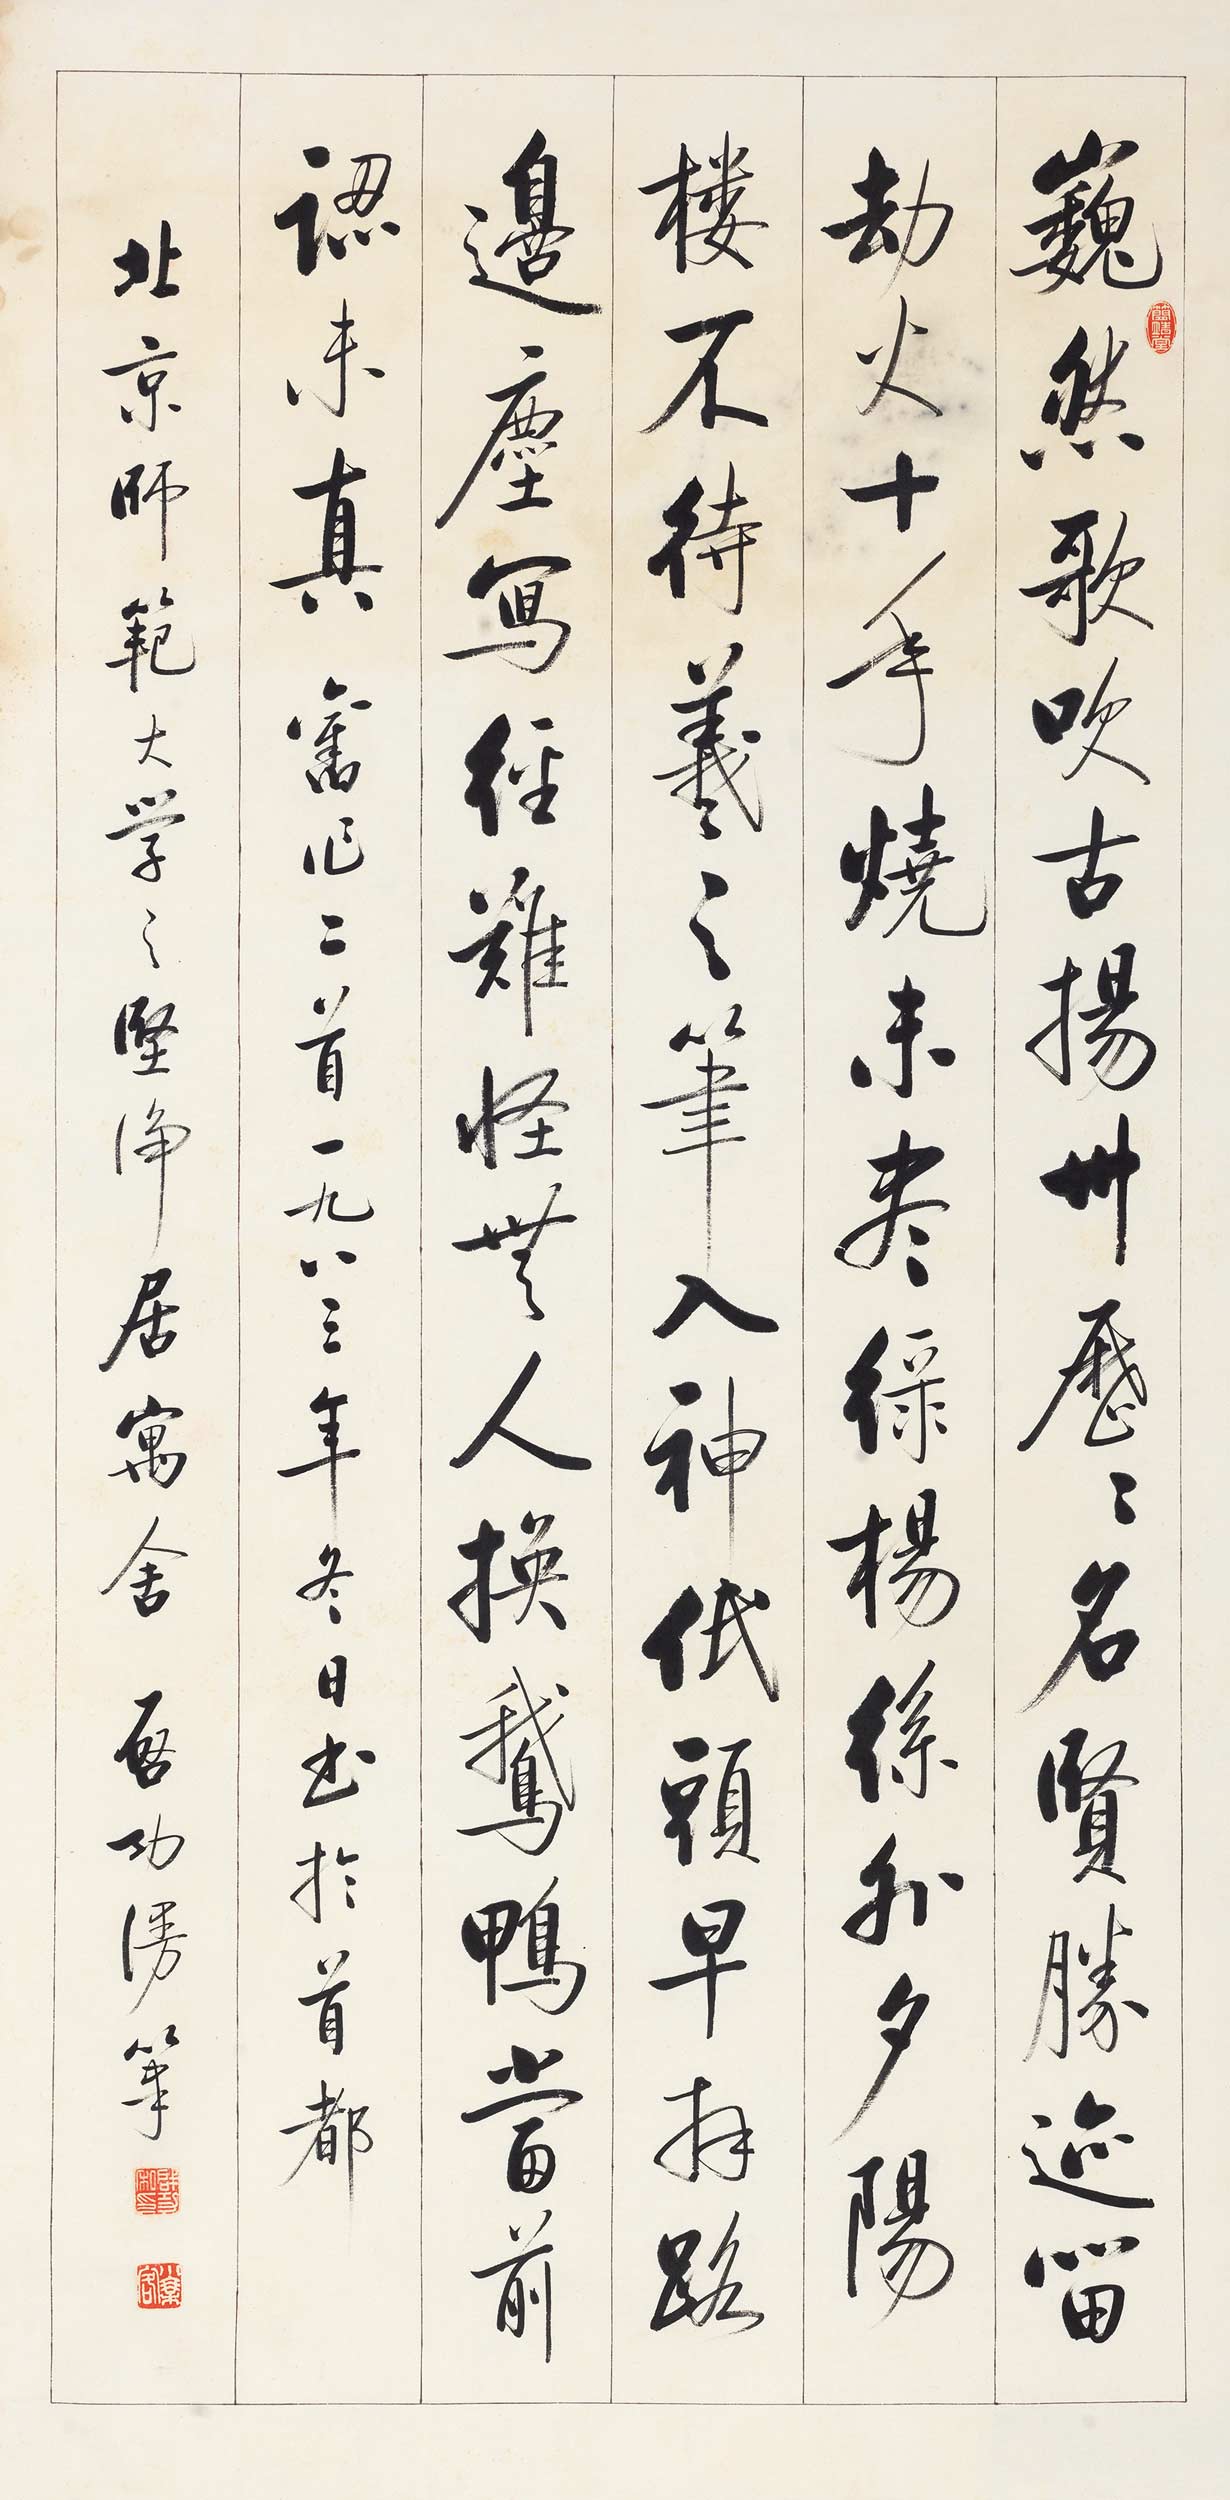 巍然歌吹古揚州歷〻名賢勝迹留
劫火十年燒未尽綠楊絲外夕陽
楼不待羲之筆入神低頭早拜路
邊塵寫經難怪無人換鵝鴨當前
認未真 舊作二首一九八三年冬日书於首都
北京師範大学之堅净居寓舍 啓功漫筆